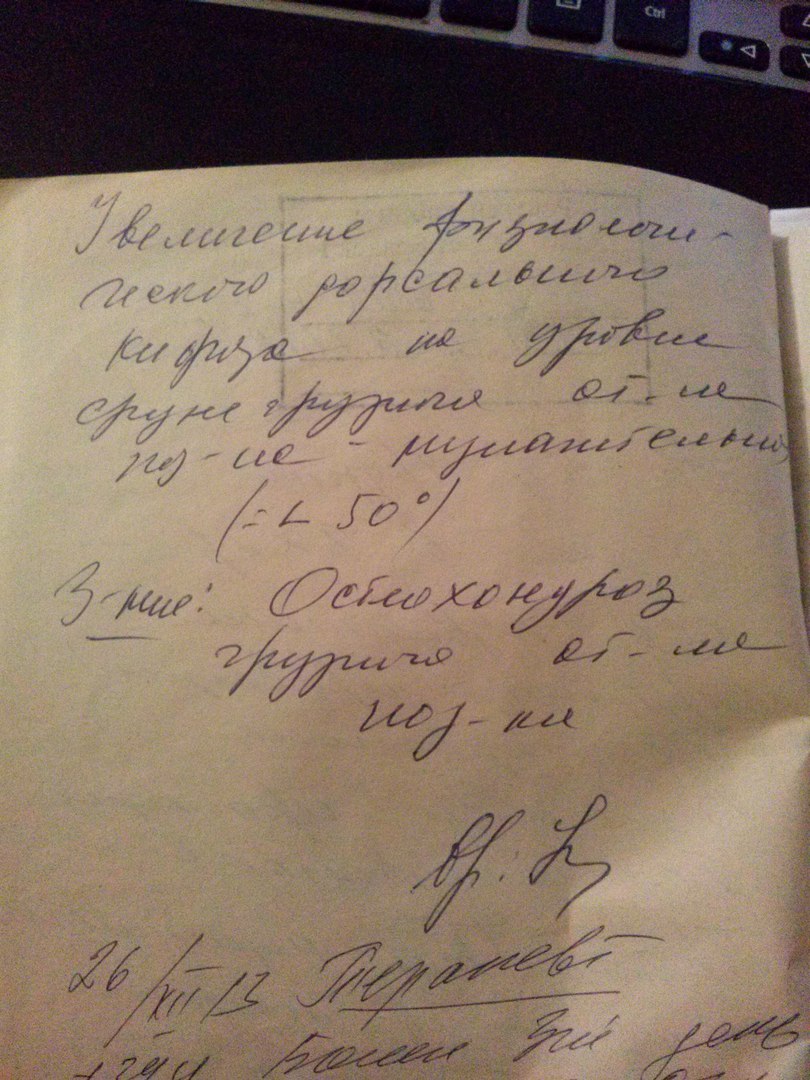 Ctrl
Увеличение физиологи-
ческого дорсального
кифоза на уровне
средне грудного от-ла
поз-ка -
(= ∟ 50°)
З-ние: Остеохондроз
грудного от-ла
поз-ка
Вр:
26/XII 13 Терапевт
Болен 3й день